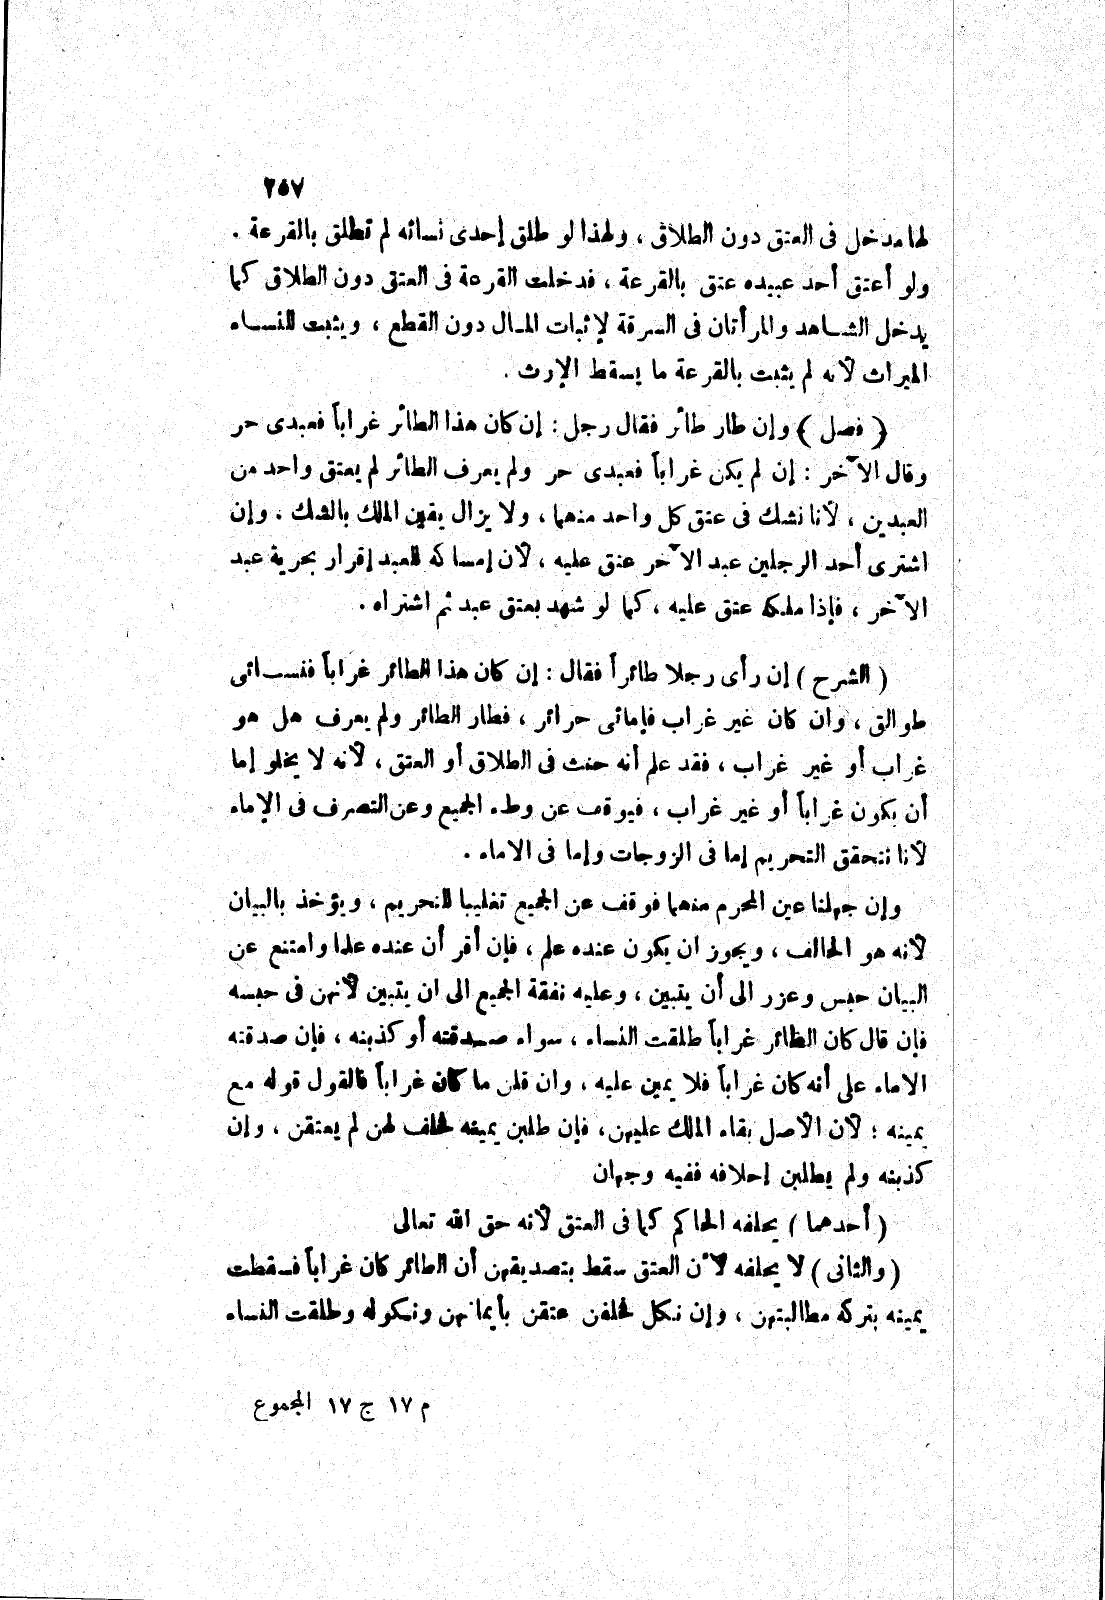 ٢٥٧
لها مدخل فى العتق دون الطلاق ، ولهذا لو طلق إحدى نسائه لم تطلق بالقرعة .
ولو أعتق أحد عبيده عتق بالقرعة ، فدخلت القرعة فى العتق دون الطلاق كما
يدخل الشاهد والمرأتان فى السرقة لإثبات المال دون القطع ، ويثبت للنساء
الميراث لأنه لم يثبت بالقرعة ما يسقط الإرث .
( فصل ) وإن طار طائر فقال رجل : إن كان هذا الطائر غراباً فعبدى حر
وقال الآخر : إن لم يكن غراباً فعبدى حر ولم يعرف الطائر لم يعتق واحد من
العبدين ، لأنا نشك فى عتق كل واحد منهما ، ولا يزال يقين الملك بالشك . وإن
اشترى أحد الرجلين عبد الآخر عتق عليه ، لأن إمساكه للعبد إقرار بحرية عبد
الآخر ، فإذا ملكه عتق عليه ، كما لو شهد بعتق عبد ثم اشتراه .
( الشرح ) إن رأى رجلا طائراً فقال : إن كان هذا الطائر غراباً فنسائى
طوالق ، وان كان غير غراب فإمائى حرائر ، فطار الطائر ولم يعرف هل هو
غراب أو غير غراب ، فقد علم أنه حنث فى الطلاق أو العتق ، لأنه لا يخلو إما
أن يكون غراباً أو غير غراب ، فيوقف عن وطء الجميع وعن التصرف فى الإماء
لأنا نتحقق التحريم إما فى الزوجات وإما فى الاماء .
وإن جهلنا عين المحرم منهما فوقف عن الجميع تغليبا للتحريم ، ويؤخذ بالبيان
لأنه هو الحالف ، ويجوز ان يكون عنده علم ، فإن أقر أن عنده علما وامتنع عن
البيان حبس وعزر الى أن يتبين ، وعليه نفقة الجميع الى ان يتبين لأنهن فى حبسه
فإن قال كان الطائر غراباً طلقت النساء ، سواء صدقته أو كذبنه ، فإن صدقنه
الاماء على أنه كان غراباً فلا يمين عليه ، وان قلن ما كان غراباً فالقول قوله مع
يمينه ؛ لأن الأصل بقاء الملك عليهن ، فإن طلبن يمينه فحلف لهن لم يعتقن ، وإن
كذبنه ولم يطلبن إحلافه ففيه وجهان
( أحدهما ) يحلفه الحاكم كما فى العتق لأنه حق الله تعالى
( والثانى ) لا يحلفه لأن العتق سقط بتصديقهن أن الطائر كان غراباً فسقطت
يمينه بتركه مطالبتهن ، وإن نكل فحلفن عتقن بأيمانهن ونكوله وطلقت النساء
م ١٧ ج ١٧ المجموع